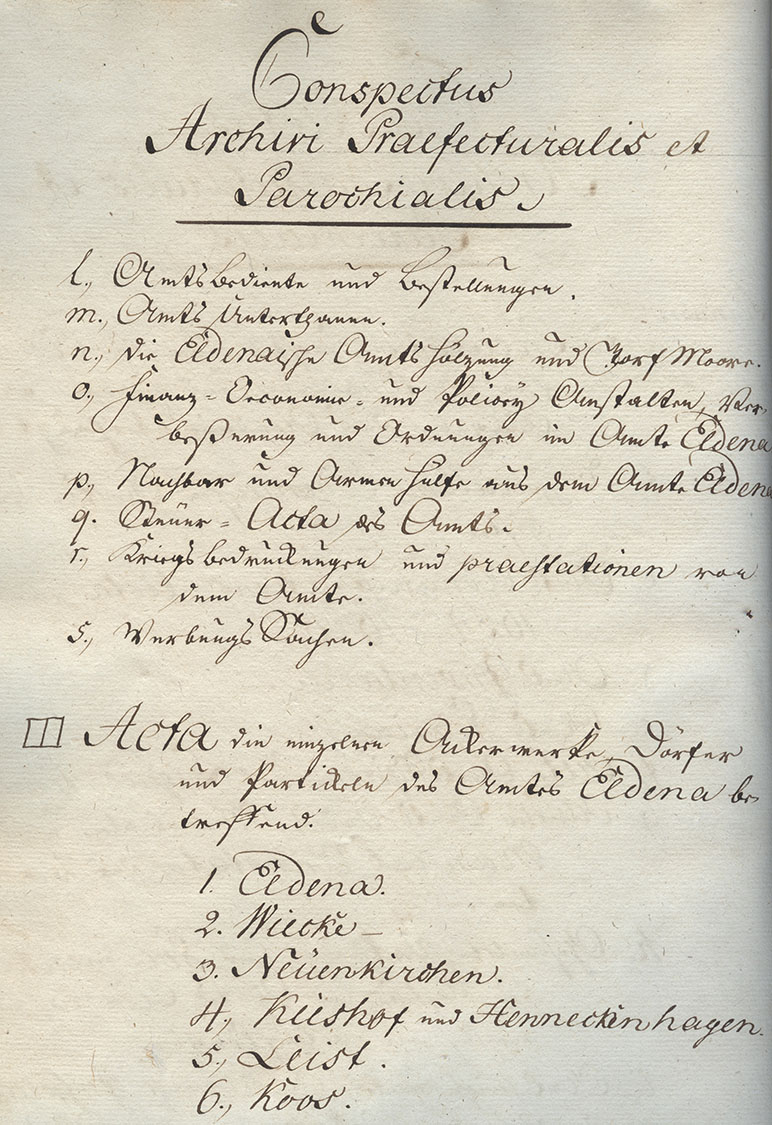 Conspectus
Archivi Praefecturalis et
Parochialis.
l., Amtsbediente und Bestellungen.
m., Amts Unterthanen.
n., die Eldenaische Amts Hölzung und Torf Moore.
o., Finanz- Oeconomie- und Policey Anstalten, Ver-
beßerung und Ordnungen im Amte Eldena
p., Nachbar und Armen Hülfe aus dem Amte Eldena
q. Steüer- Acta des Amts.
r., Kriegsbedrückungen und praestationen von
dem Amte.
s., Werbungs Sachen.
II Acta die einzelnen Ackerwerke, Dörfer
und Partickeln des Amtes Eldena be-
treffend.
1. Eldena.
2. Wiecke –
3. Neüenkirchen.
4., Kieshof und Henneckenhagen.
5., Leist.
6., Koos.